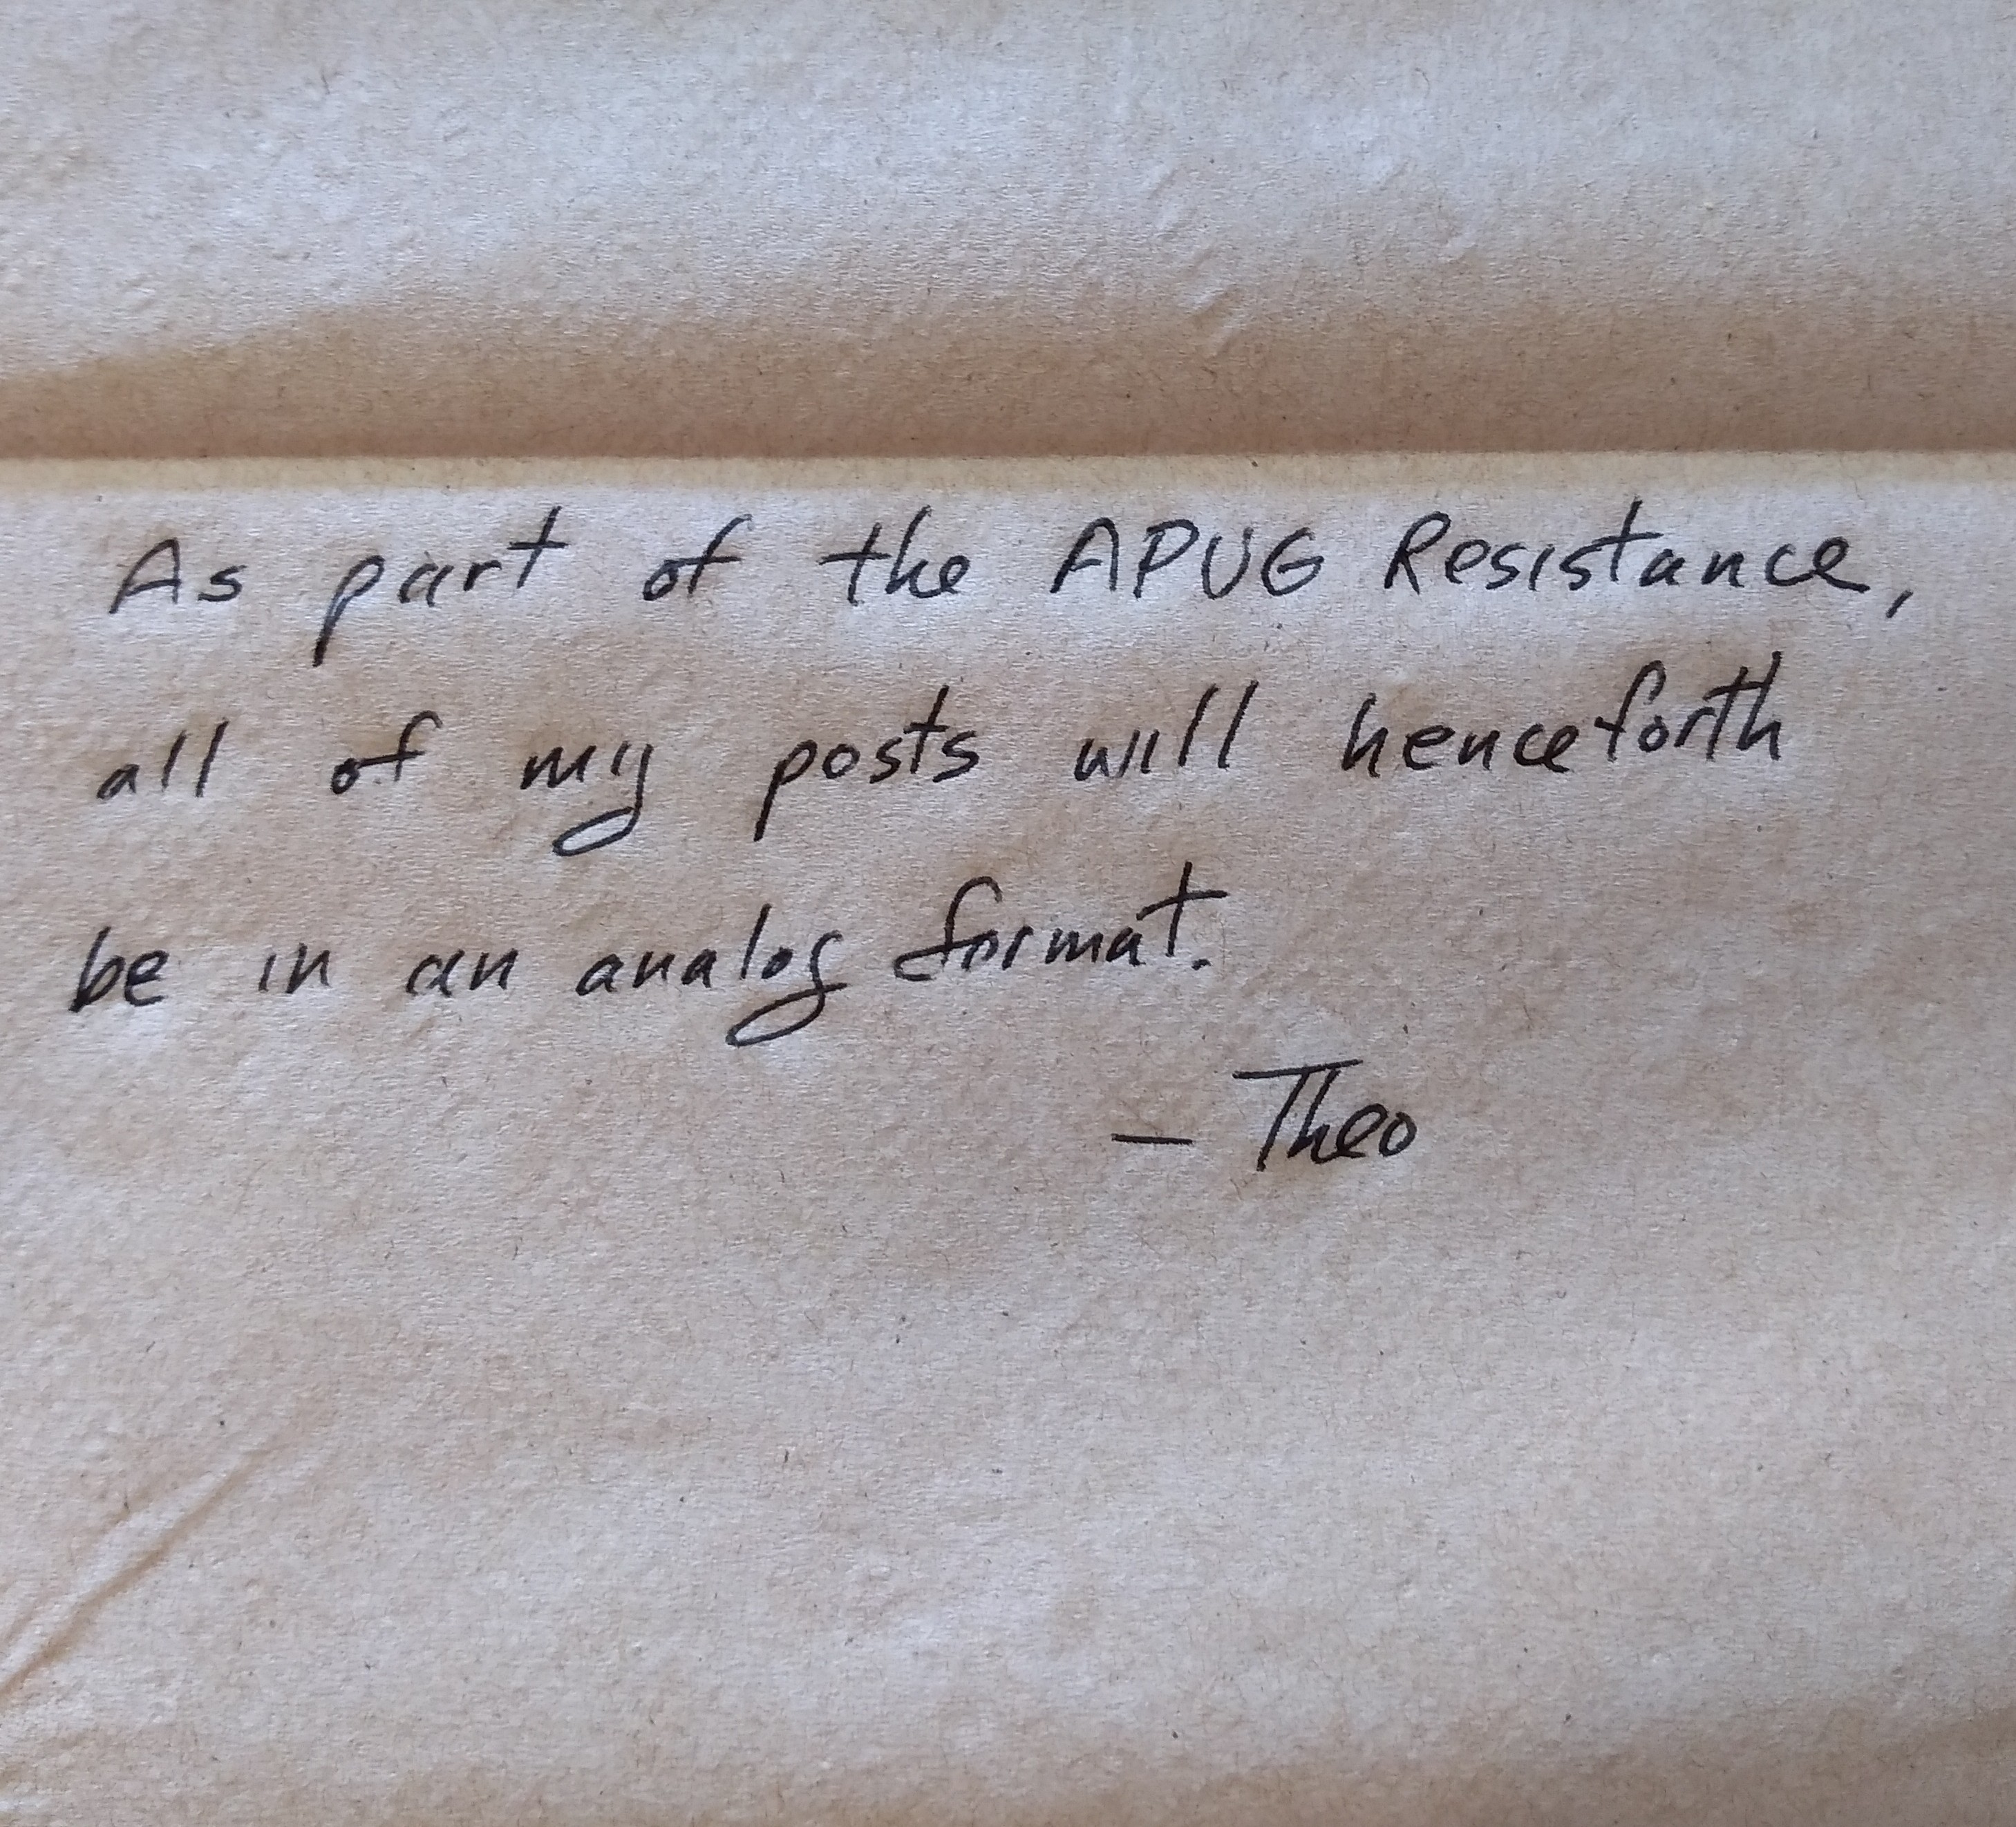 As part of the APUG Resistance,
all of my posts will henceforth
be in an analog format.
– Theo